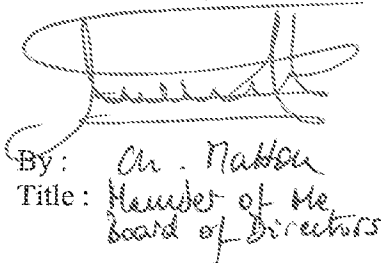 By : Ch. Matton
Title : Member of the
Board of Directors